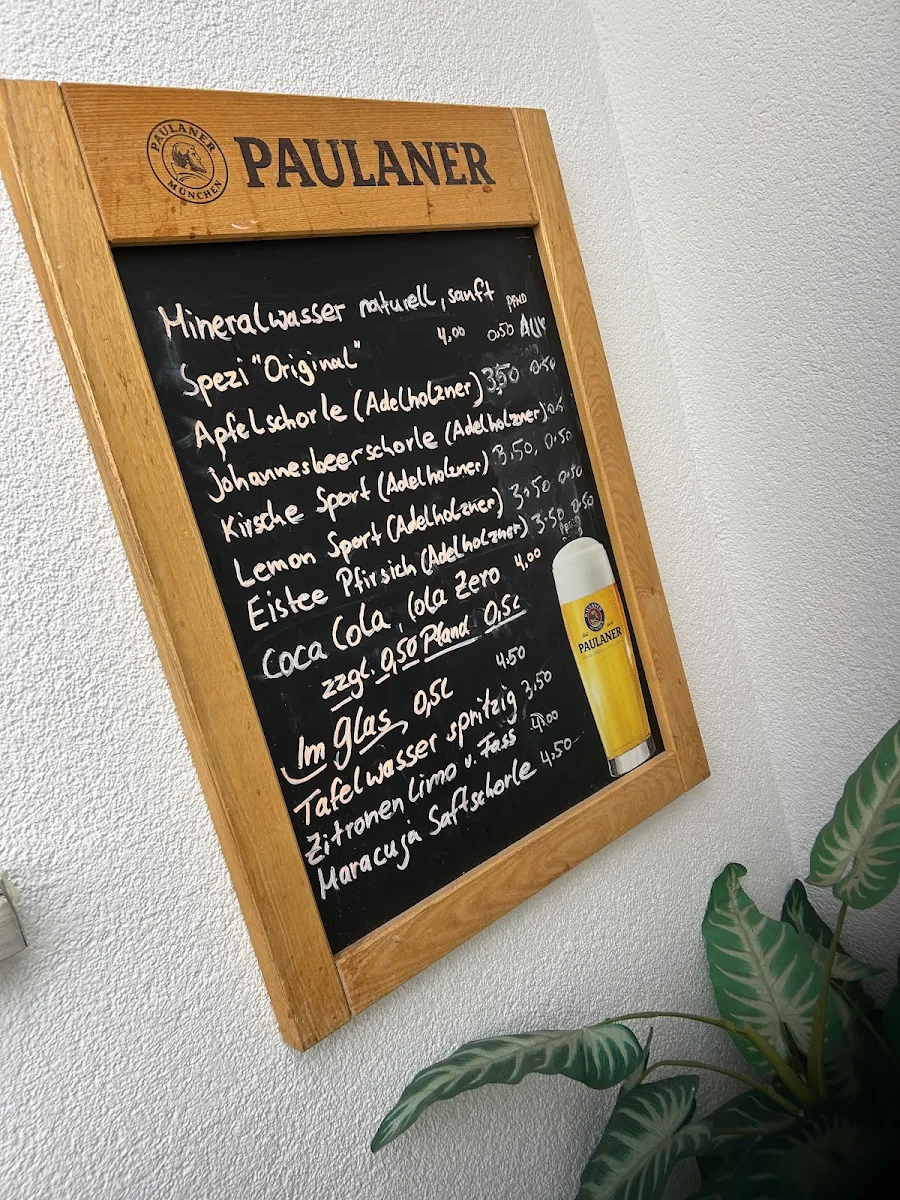 PAULANER MÜNCHEN
PAULANER
Mineralwasser naturell, sanft PFND
Spezi "Original" 4,00 0,50
Apfelschorle (Adelholzner) 3,50 0,50
Johannesbeerschorle (Adelholzner)
Kirsche Sport (Adelholzner) 3,50, 0,50
Lemon Sport (Adelholzner) 3,50 0,50
Eistee Pfirsich (Adelholzner) 3,50 0,50
Coca Cola, Cola Zero 4,00
zzgl. 0,50 Pfand 0,5L
Im Glas 0,5L 4,50
Tafelwasser spritzig 3,50
Zitronen Limo v. Fass 4,00
Maracuja Saftschorle 4,50
PAULANER